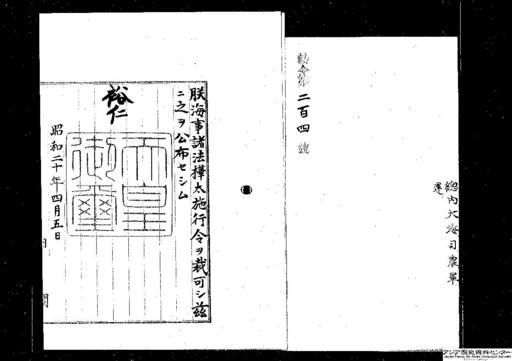 勅令第二百四號
總內大海司農軍
運
朕海事諸法樺太施行令ヲ裁可シ茲
ニ之ヲ公布セシム
裕仁
天皇御璽
昭和二十年四月五日
アジア歴史資料センター